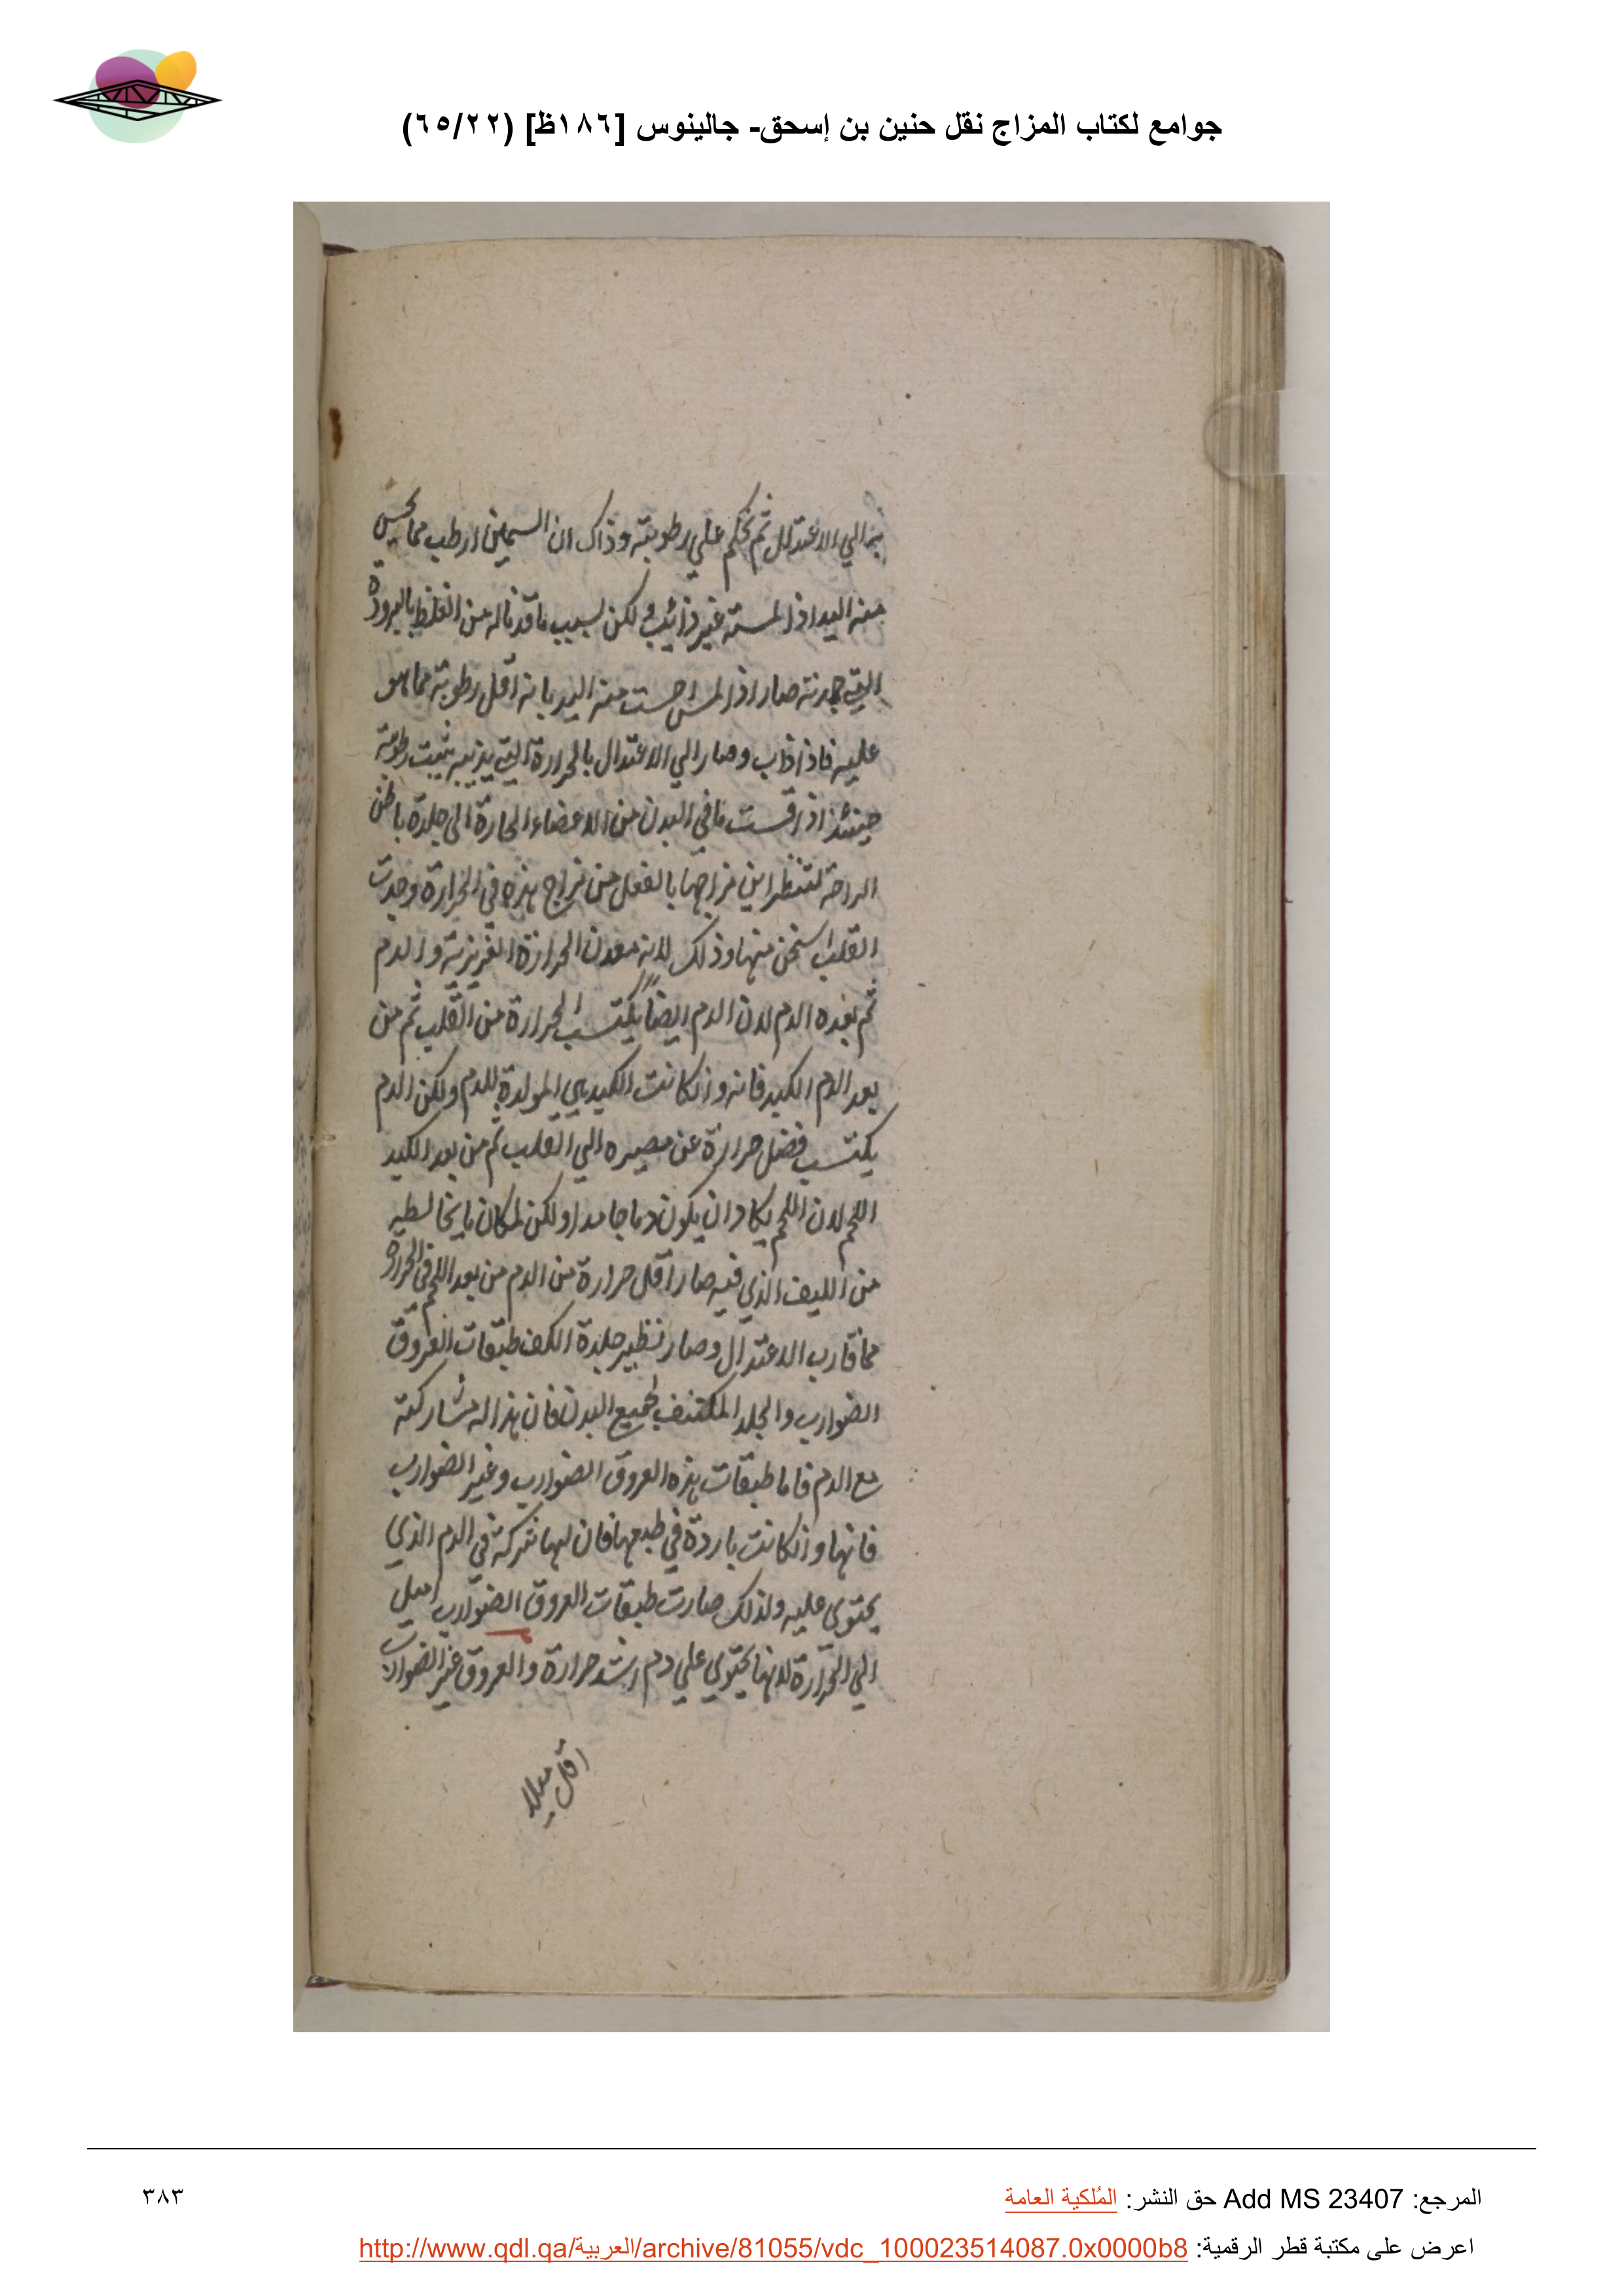 جوامع لكتاب المزاج نقل حنين بن إسحق- جالينوس [١٨٦ظ] (٦٥/٢٢)
به الي الاعتدال ثم تحكم علي رطوبته وذاك ان السمين ارطب مما يحس
منه اليد اذا لمسته غير ذائب ولكن بسبب ما قد ناله من الغلظ بالبرودة
التي جمدته صار اذا لمس احست منه اليد بانه اقل رطوبة مما هو
عليه فاذا ذاب وصار الي الاعتدال بالحرارة التي يذيبه تبينت رطوبته
حينئذ اذا قست ما في البدن من الاعضاء الحارة الى جلدة باطن
الراحة لتنظر اين مزاجها بالفعل من مزاج هذه في الحرارة وجدت
القلب اسخن منها وذلك لانه معدن الحرارة الغريزية والدم
ثم بعده الدم لان الدم ايضاً يكتسب الحرارة من القلب ثم من
بعد الدم الكبد فانه وان كانت الكبد هي المولدة للدم ولكن الدم
يكتسب فضل حرارة عن مصيره الي القلب ثم من بعد الكبد
اللحم لان اللحم يكاد ان يكون دما جامدا ولكن لمكان ما يخالطه
من الليف الذي فيه صار اقل حرارة من الدم من بعد اللحم في الحرارة
مما قارب الاعتدال وصار نظير جلدة الكف طبقات العروق
الضوارب والجلد المكتنف لجميع البدن فان هذا له مشاركته
مع الدم فاما طبقات هذه العروق الضوارب وغير الضوارب
فانها وان كانت باردة في طبعها فان لها شركة في الدم الذي
يحتوي عليه ولذلك صارت طبقات العروق الضوارب اميل
الي الحرارة لانها يحتوي علي دم اشد حرارة والعروق غير الضوارب
اقل ميلا
المرجع: Add MS 23407 حق النشر: المُلكية العامة
٣٨٣
اعرض على مكتبة قطر الرقمية: http://www.qdl.qa/العربية/archive/81055/vdc_100023514087.0x0000b8